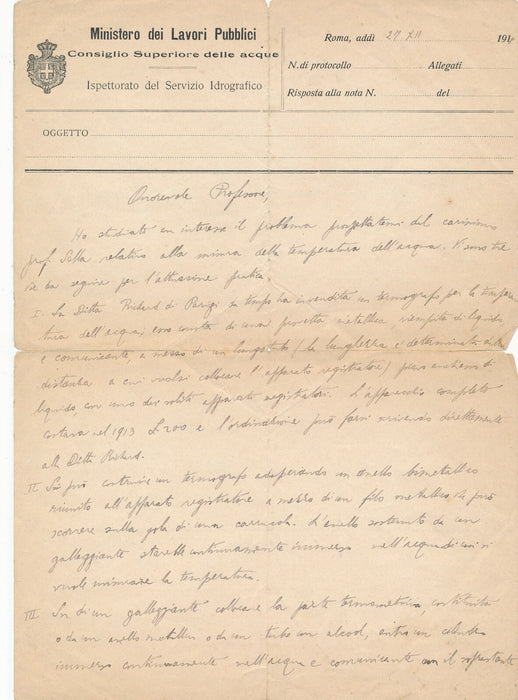 Ministero dei Lavori Pubblici
Consiglio Superiore delle acque
Ispettorato del Servizio Idrografico
Roma, addì 27 XII 191
N. di protocollo Allegati
Risposta alla nota N. del
OGGETTO
Onorevole Professore,
Ho studiato con interesse il problema prospettatomi dal carissimo
prof. Sella relativo alla misura della temperatura dell'acqua. Vi sono tre
vie da seguire per l'attuazione pratica
I. La Ditta Richard di Parigi da tempo ha in vendita un termografo per la tempera
tura dell'acqua; consta di una provetta metallica riempita di liquido
e comunicante a mezzo di un lungo tubo (la lunghezza è determinata dalla
distanza a cui vuolsi collocare l'apparato registratore) pure di
liquido con uno dei soliti apparati registratori. L'apparecchio completo
costava nel 1913 £ 200 e l'ordinazione può farsi scrivendo direttamente
alla Ditta Richard.
II Si può costruire un termografo adoperando un anello bimetallico
riunito all'apparato registratore a mezzo di un filo metallico che può
scorrere sulla gola di una carrucola. L'anello sostenuto da un
galleggiante starebbe continuamente immerso nell'acqua di cui si
vuole misurare la temperatura.
III In di un galleggiante collocare la parte termometrica, costituita
o da un anello metallico o da un tubo con alcool, entro un cilindro
immerso continuamente nell'acqua e comunicante con il soprastante